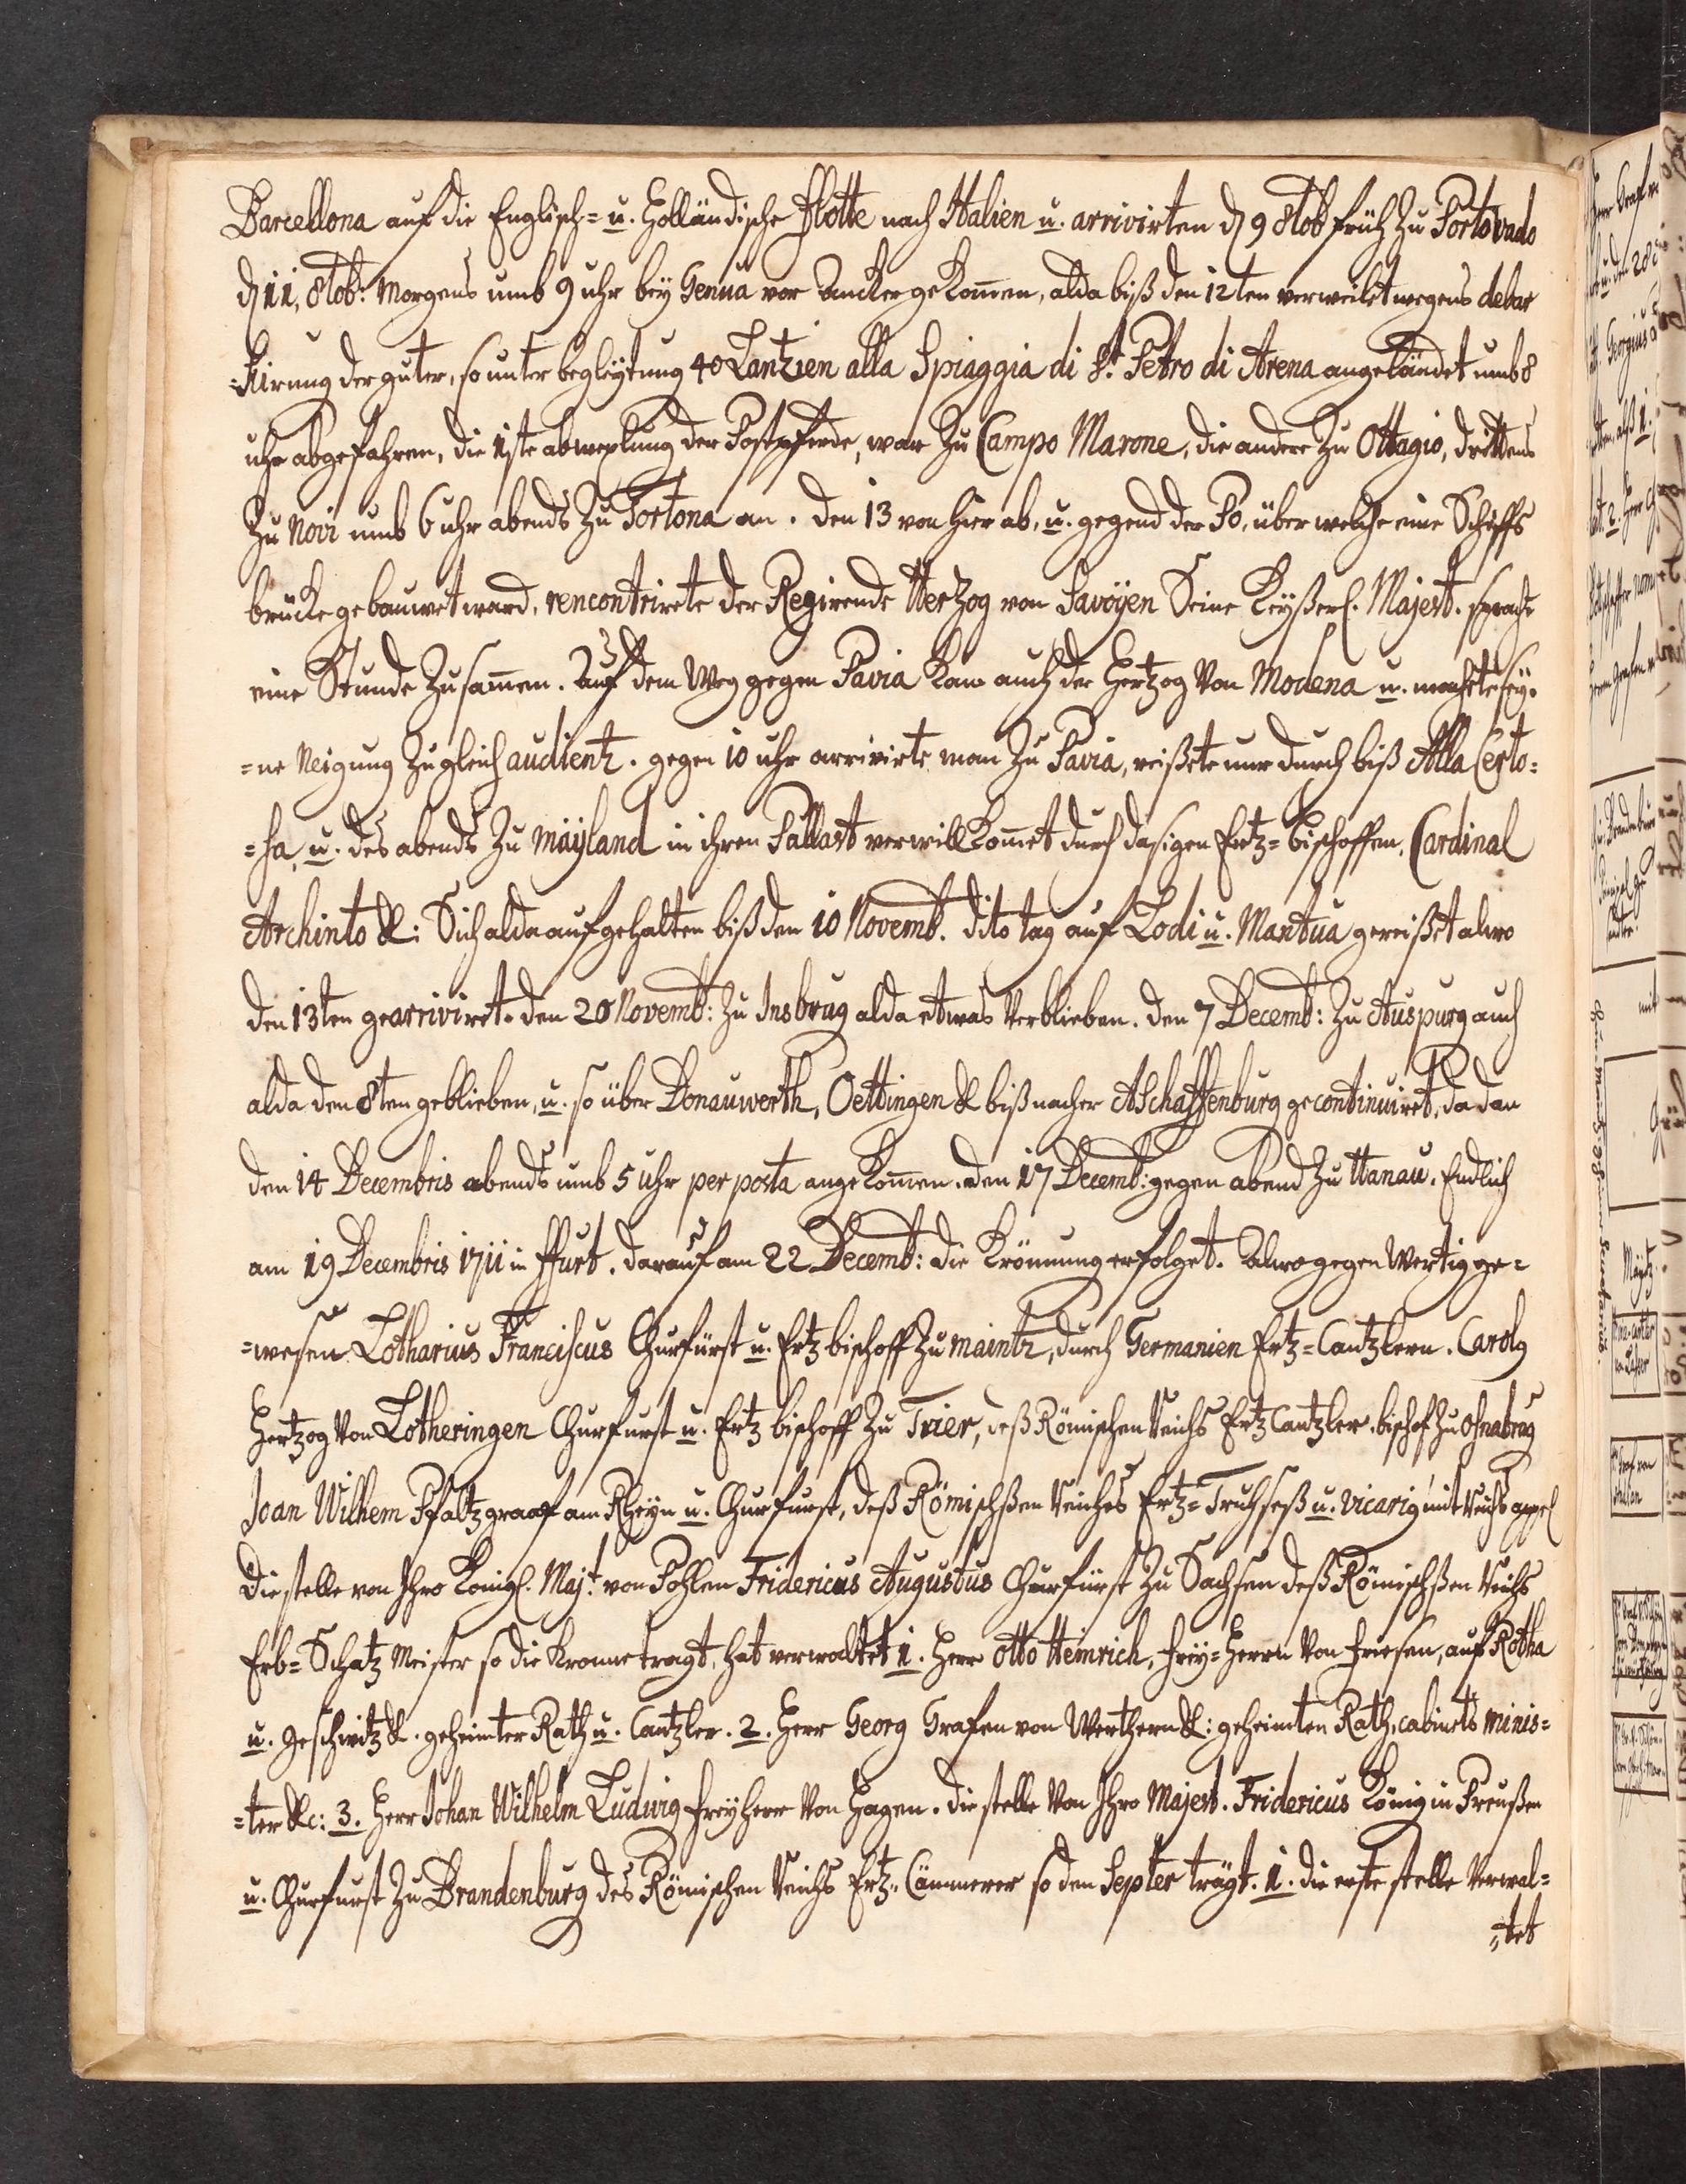 Barcellona auf die Englisch= u. Holländische flotte nach Italien u. arrivirten d 9 8tob früh zu Porto vado
d 11, 8tob: Morgens umb 9 uhr bey Genua vor Ancker gekom̄en, alda biß den 12ten verweilet wegens debar
=kirung der guter, so unter begleytung 40 Lantzien alla Spiaggia di St. Petro di Arena angeländet umb 8
uhr abgefahren, die 1ste abwexlung der Postpferde, war zu Campo Marone, die andere zu Ottagio, drittens
zu Novi umb 6 uhr abends zu Tortona an. den 13 von hier ab, u. gegend der Po, über welche eine Schiffs
brücke gebauwet ward, rencontrirete der Regirende Hertzog von Savöyen Seine Keyßerl. Majest. sprache
eine Stunde zusam̄en. Auf dem Weg gegen Pavia kam auch der Hertzog von Modena u. machete sey=
=ne Neigung zugleich audientz. gegen 10 uhr arrivirte man zu Pavia, reißete nur durch biß Alla Certo=
=sa, u. des abends zu Mäyland in ihren Pallast verwillkom̄et durch dasigen Ertz=bischoffen, Cardinal
Archinto &: Sich alda aufgehalten biß den 10 Novemb. dito tag auf Lodi u. Mantua gereißet alwo
den 13ten gearriviret. den 20 Novemb: zu Insbrug alda etwas verblieben. den 7 Decemb: zu Auspurg auch
alda den 8ten geblieben, u. so über Donauwerth, Oettingen & biß nacher Aschaffenburg gecontinuiret, da dan
den 14 Decembris abends umb 5 uhr per posta angekom̄en. den 17 Decemb: gegen abend zu Hanau. Endlich
am 19 Decembris 1711 in ffurt. darauf am 22 Decemb: die Krönnung erfolget. Alwo gegen Wertig ge=
=wesen Lotharius Franciscus Churfürst u. Ertzbischoff zu Maintz, durch Germanien Ertz=Cantzlern. Carolg
Hertzog von Lotheringen Churfurst u. Ertz bischoff zu Trier, deß Römischen Reichs Ertz Cantzler. bischof zu Osnabrug
Joan Wilhem Pfaltzgraaf am Rheyn u. Churfurst, deß Römischßen Reiches Ertz=Truchseß u. vicarig mit Reichs appel
die stelle von Ihro Königl. Majt. von Pohlen Fridericus Augustus Churfürst zu Sachsen deß Römischßen Reichs
Erb=Schatz Meister so die Kronne tragt, hat verwaltet 1. Herr Otto Heinrich, frey=Herrn von friesen, auf Rötha
u. Geschwitz &. geheimter Rath u. Cantzler. 2. Herr Georg Grafen von Werthern &: geheimten Rath, cabinets Minis=
=ter &c: 3. Herr Johan Wilhelm Ludwig freyherr von Hagen. die stelle von Ihro Majest. Fridericus König in Preußen
u. Churfurst zu Brandenburg des Römischen Reichs Ertz=Cämmerer so den Septer trägt. 1. die erste stelle verwal=
=tet